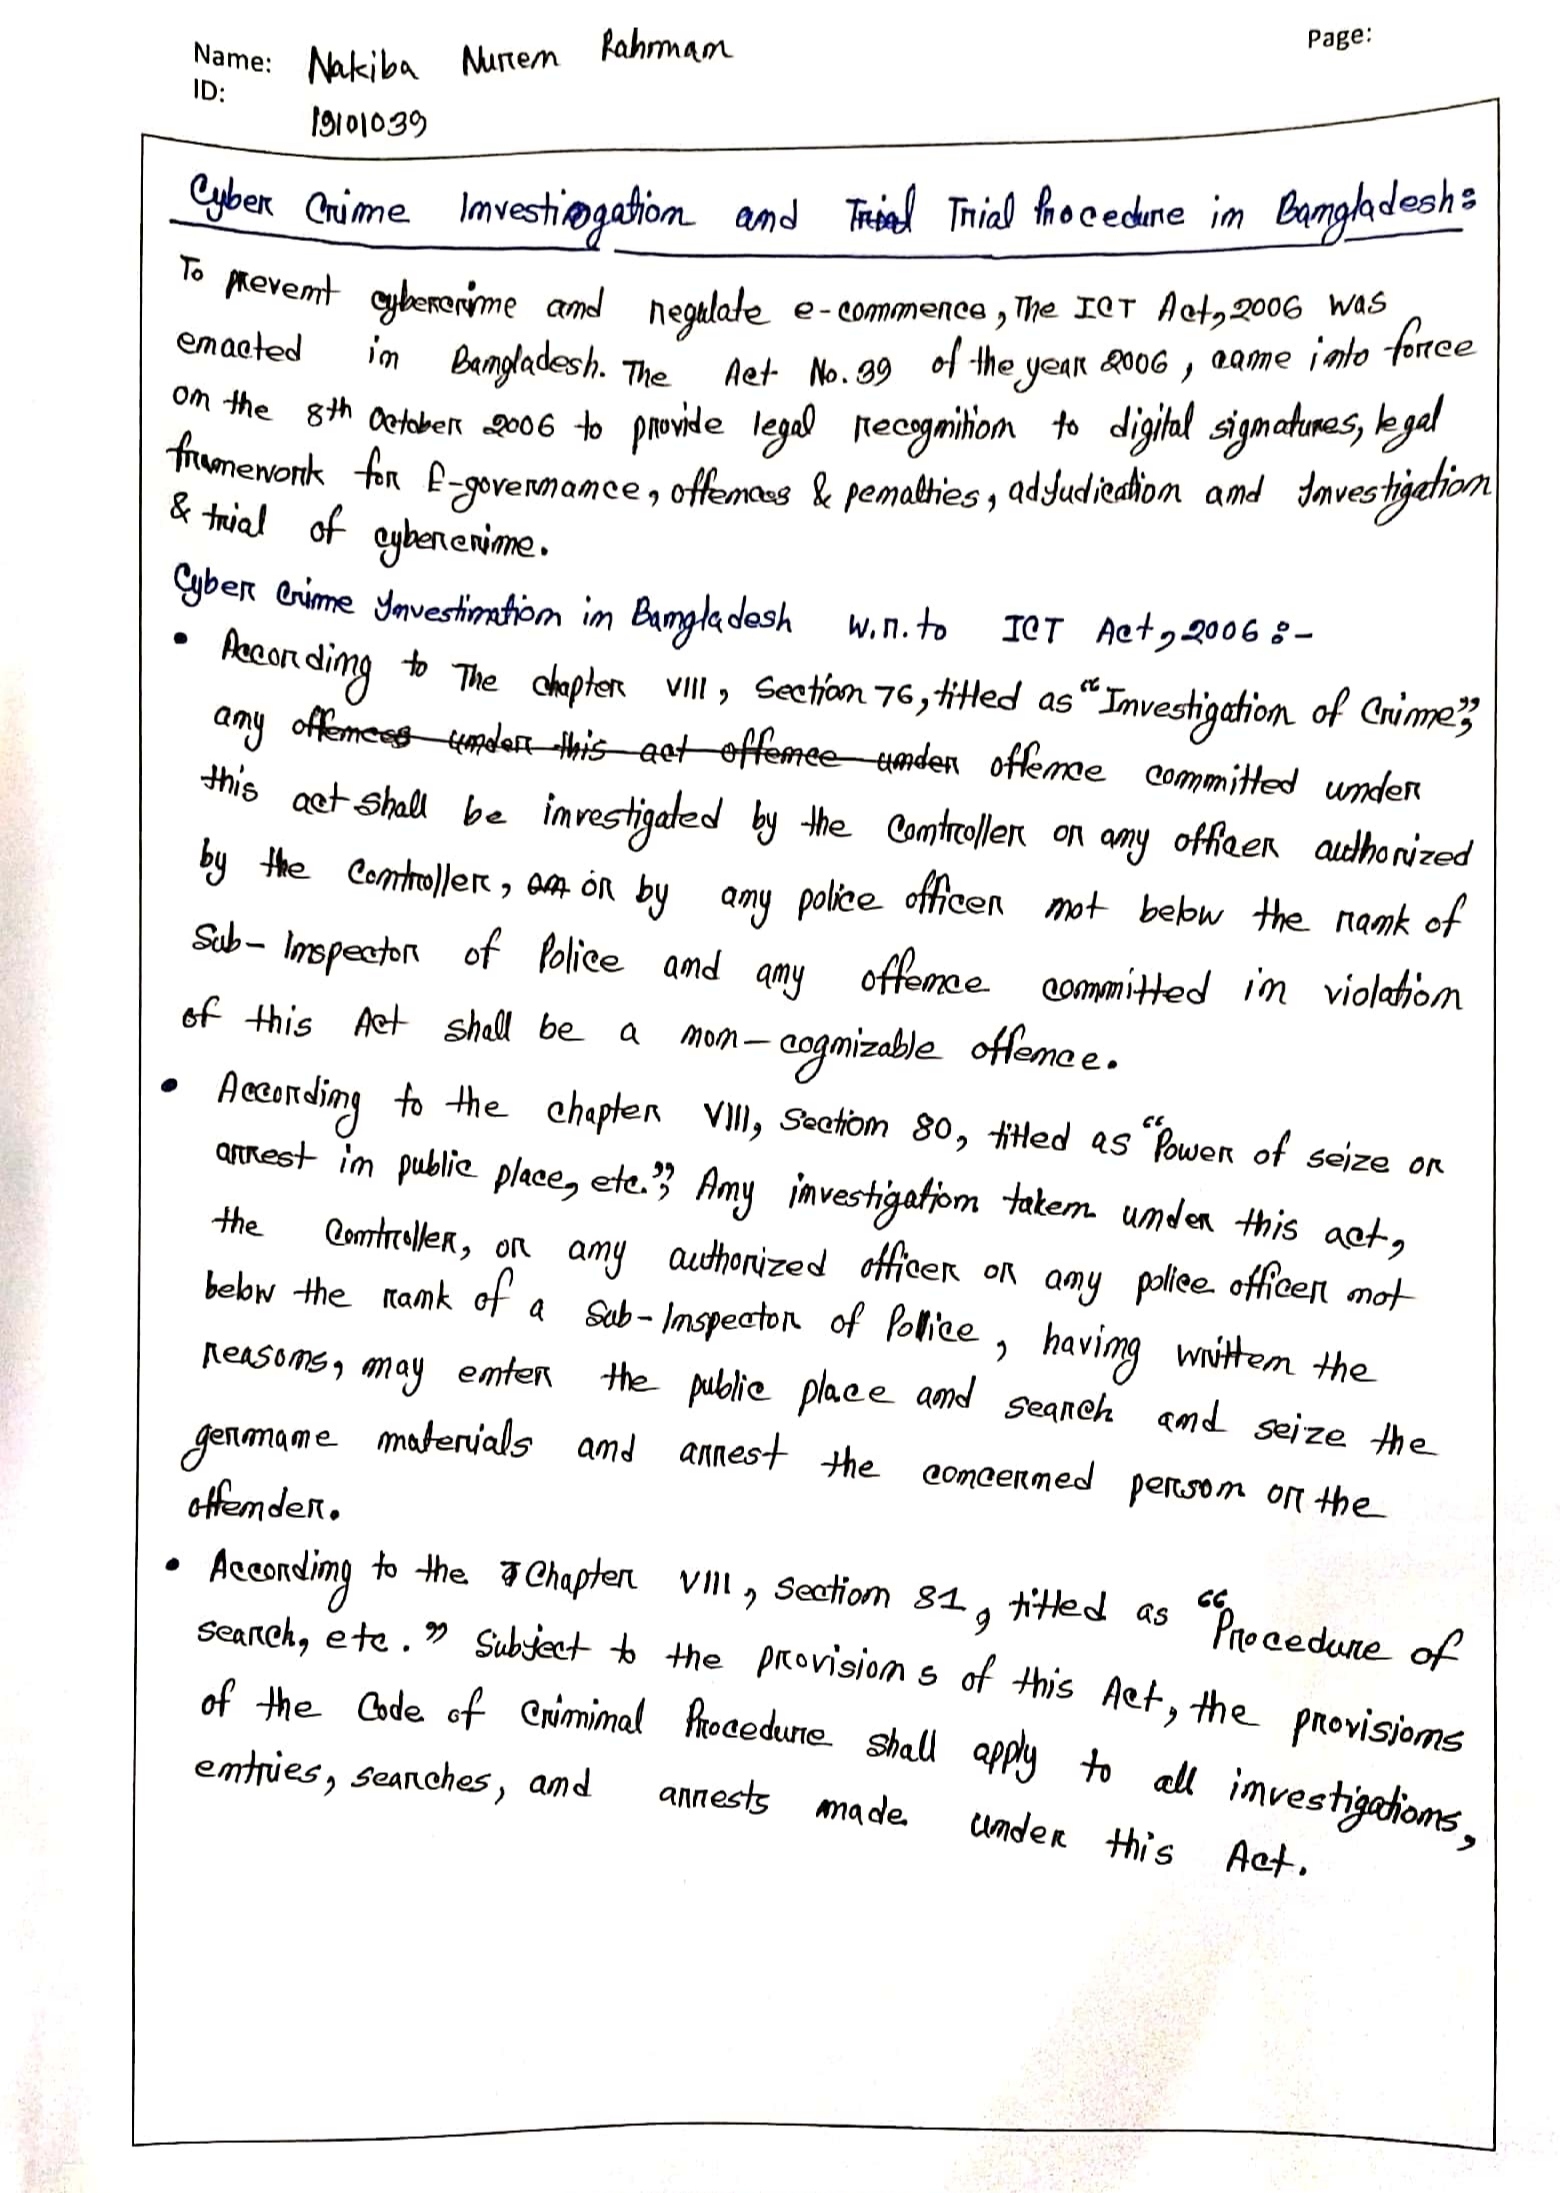 Name: Nakiba Nuren Rahman
Page:
ID:
19101039
Cyber Crime Investigation and Trial Trial Procedure in Bangladesh:
To prevent cybercrime and regulate e-commerce, The ICT Act, 2006 was
enacted in Bangladesh. The Act No. 39 of the year 2006, came into force
on the 8th October 2006 to provide legal recognition to digital signatures, legal
framework for E-governance, offences & penalties, adjudication and Investigation
& trial of cybercrime.
Cyber Crime Investimation in Bangladesh w.r.to ICT Act, 2006 :-
• According to The chapter VIII, Section 76, titled as "Investigation of Crime",
any offences under this act offence under offence committed under
this act shall be investigated by the Controller or any officer authorized
by the Controller, or by any police officer not below the rank of
Sub-Inspector of Police and any offence committed in violation
of this Act shall be a non-cognizable offence.
• According to the chapter VIII, Section 80, titled as "Power of seize or
arrest in public place, etc.", Any investigation taken under this act,
the Controller, or any authorized officer or any police officer not
below the rank of a Sub-Inspector of Police, having written the
reasons, may enter the public place and search and seize the
germane materials and arrest the concerned person or the
offender.
• According to the Chapter VIII, Section 81, titled as "Procedure of
search, etc." Subject to the provisions of this Act, the provisions
of the Code of Criminal Procedure shall apply to all investigations,
entries, searches, and arrests made under this Act.